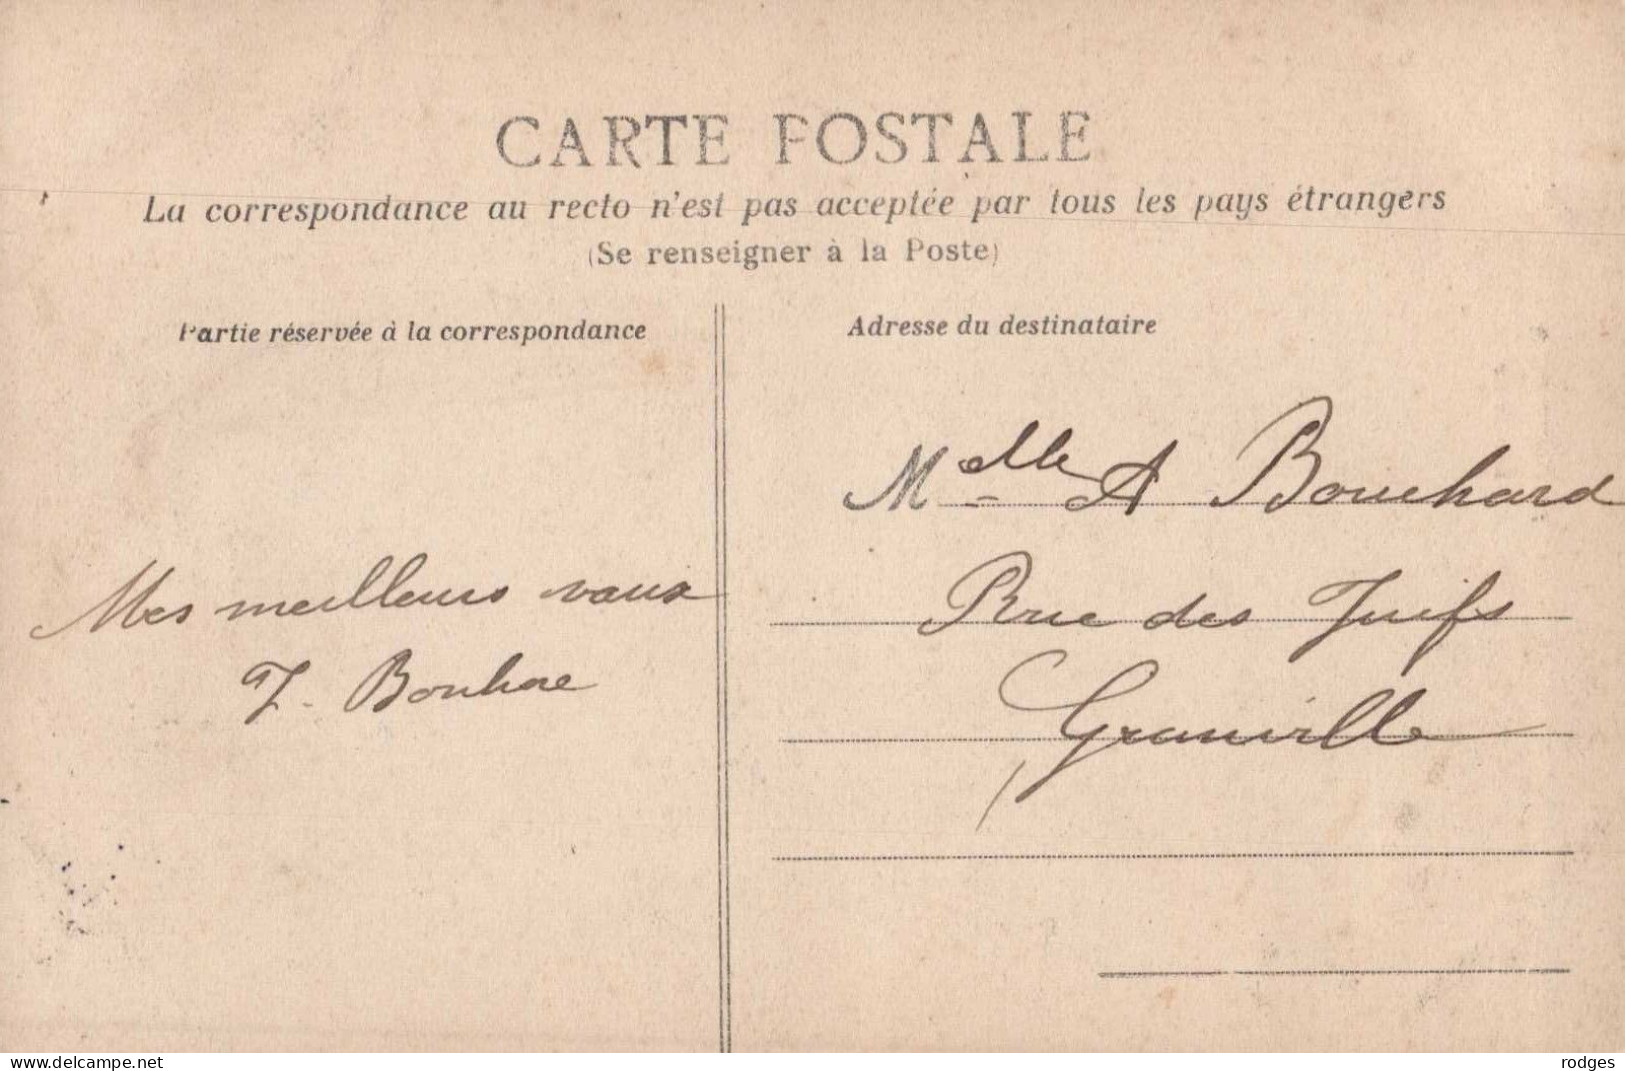 CARTE POSTALE
La correspondance au recto n'est pas acceptée par tous les pays étrangers
(Se renseigner à la Poste)
Partie réservée à la correspondance
Adresse du destinataire
Mes meilleurs vœux
Melle A Bouchard
Rue des Juifs
Granville
www.delcampe.net
rodges